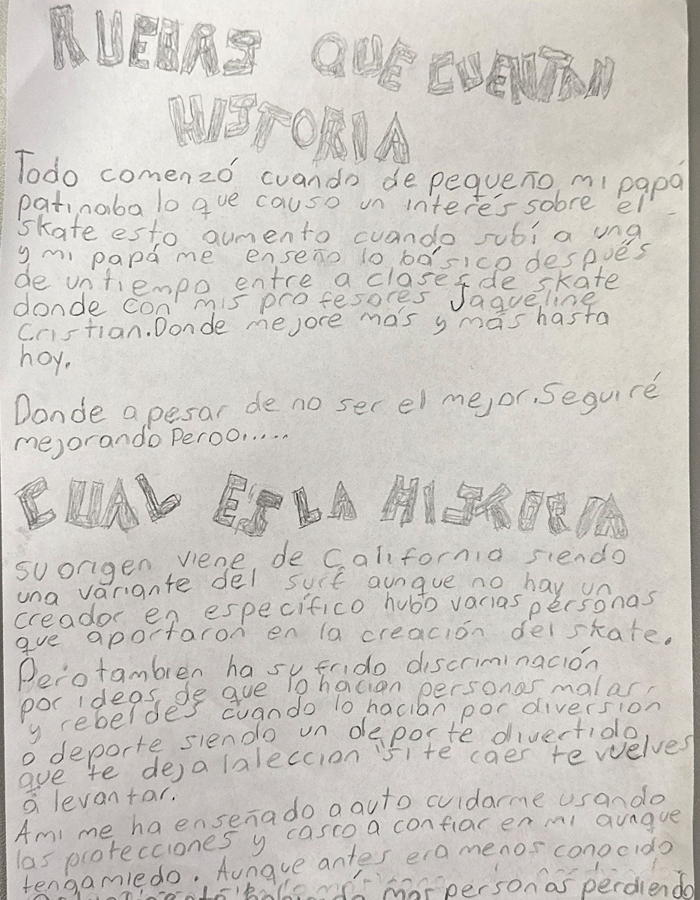 RUEDAS QUE CUENTAN
HISTORIA
Todo comenzó cuando de pequeño mi papá
patinaba lo que causo un interés sobre el
skate esto aumento cuando subí a una
y mi papá me enseño lo básico después
de un tiempo entre a clases de skate
donde con mis profesores Jaqueline
Cristian. Donde mejore más y más hasta
hoy.
Donde apesar de no ser el mejor. Seguiré
mejorando Peroo.....
CUAL ES LA HISTORIA
su origen viene de California siendo
una variante del surf aunque no hay un
creador en específico hubo varias personas
que aportaron en la creación del skate.
Pero tambien ha sufrido discriminación
por ideas de que lo hacian personas malas
y rebeldes cuando lo hacian por diversion
o deporte siendo un deporte divertido
que te deja la leccion "si te caes te vuelves
á levantar.
Ami me ha enseñado a auto cuidarme usando
las protecciones y casco a confiar en mi aunque
tengamiedo. Aunque antes era menos conocido
más personas perdiendo